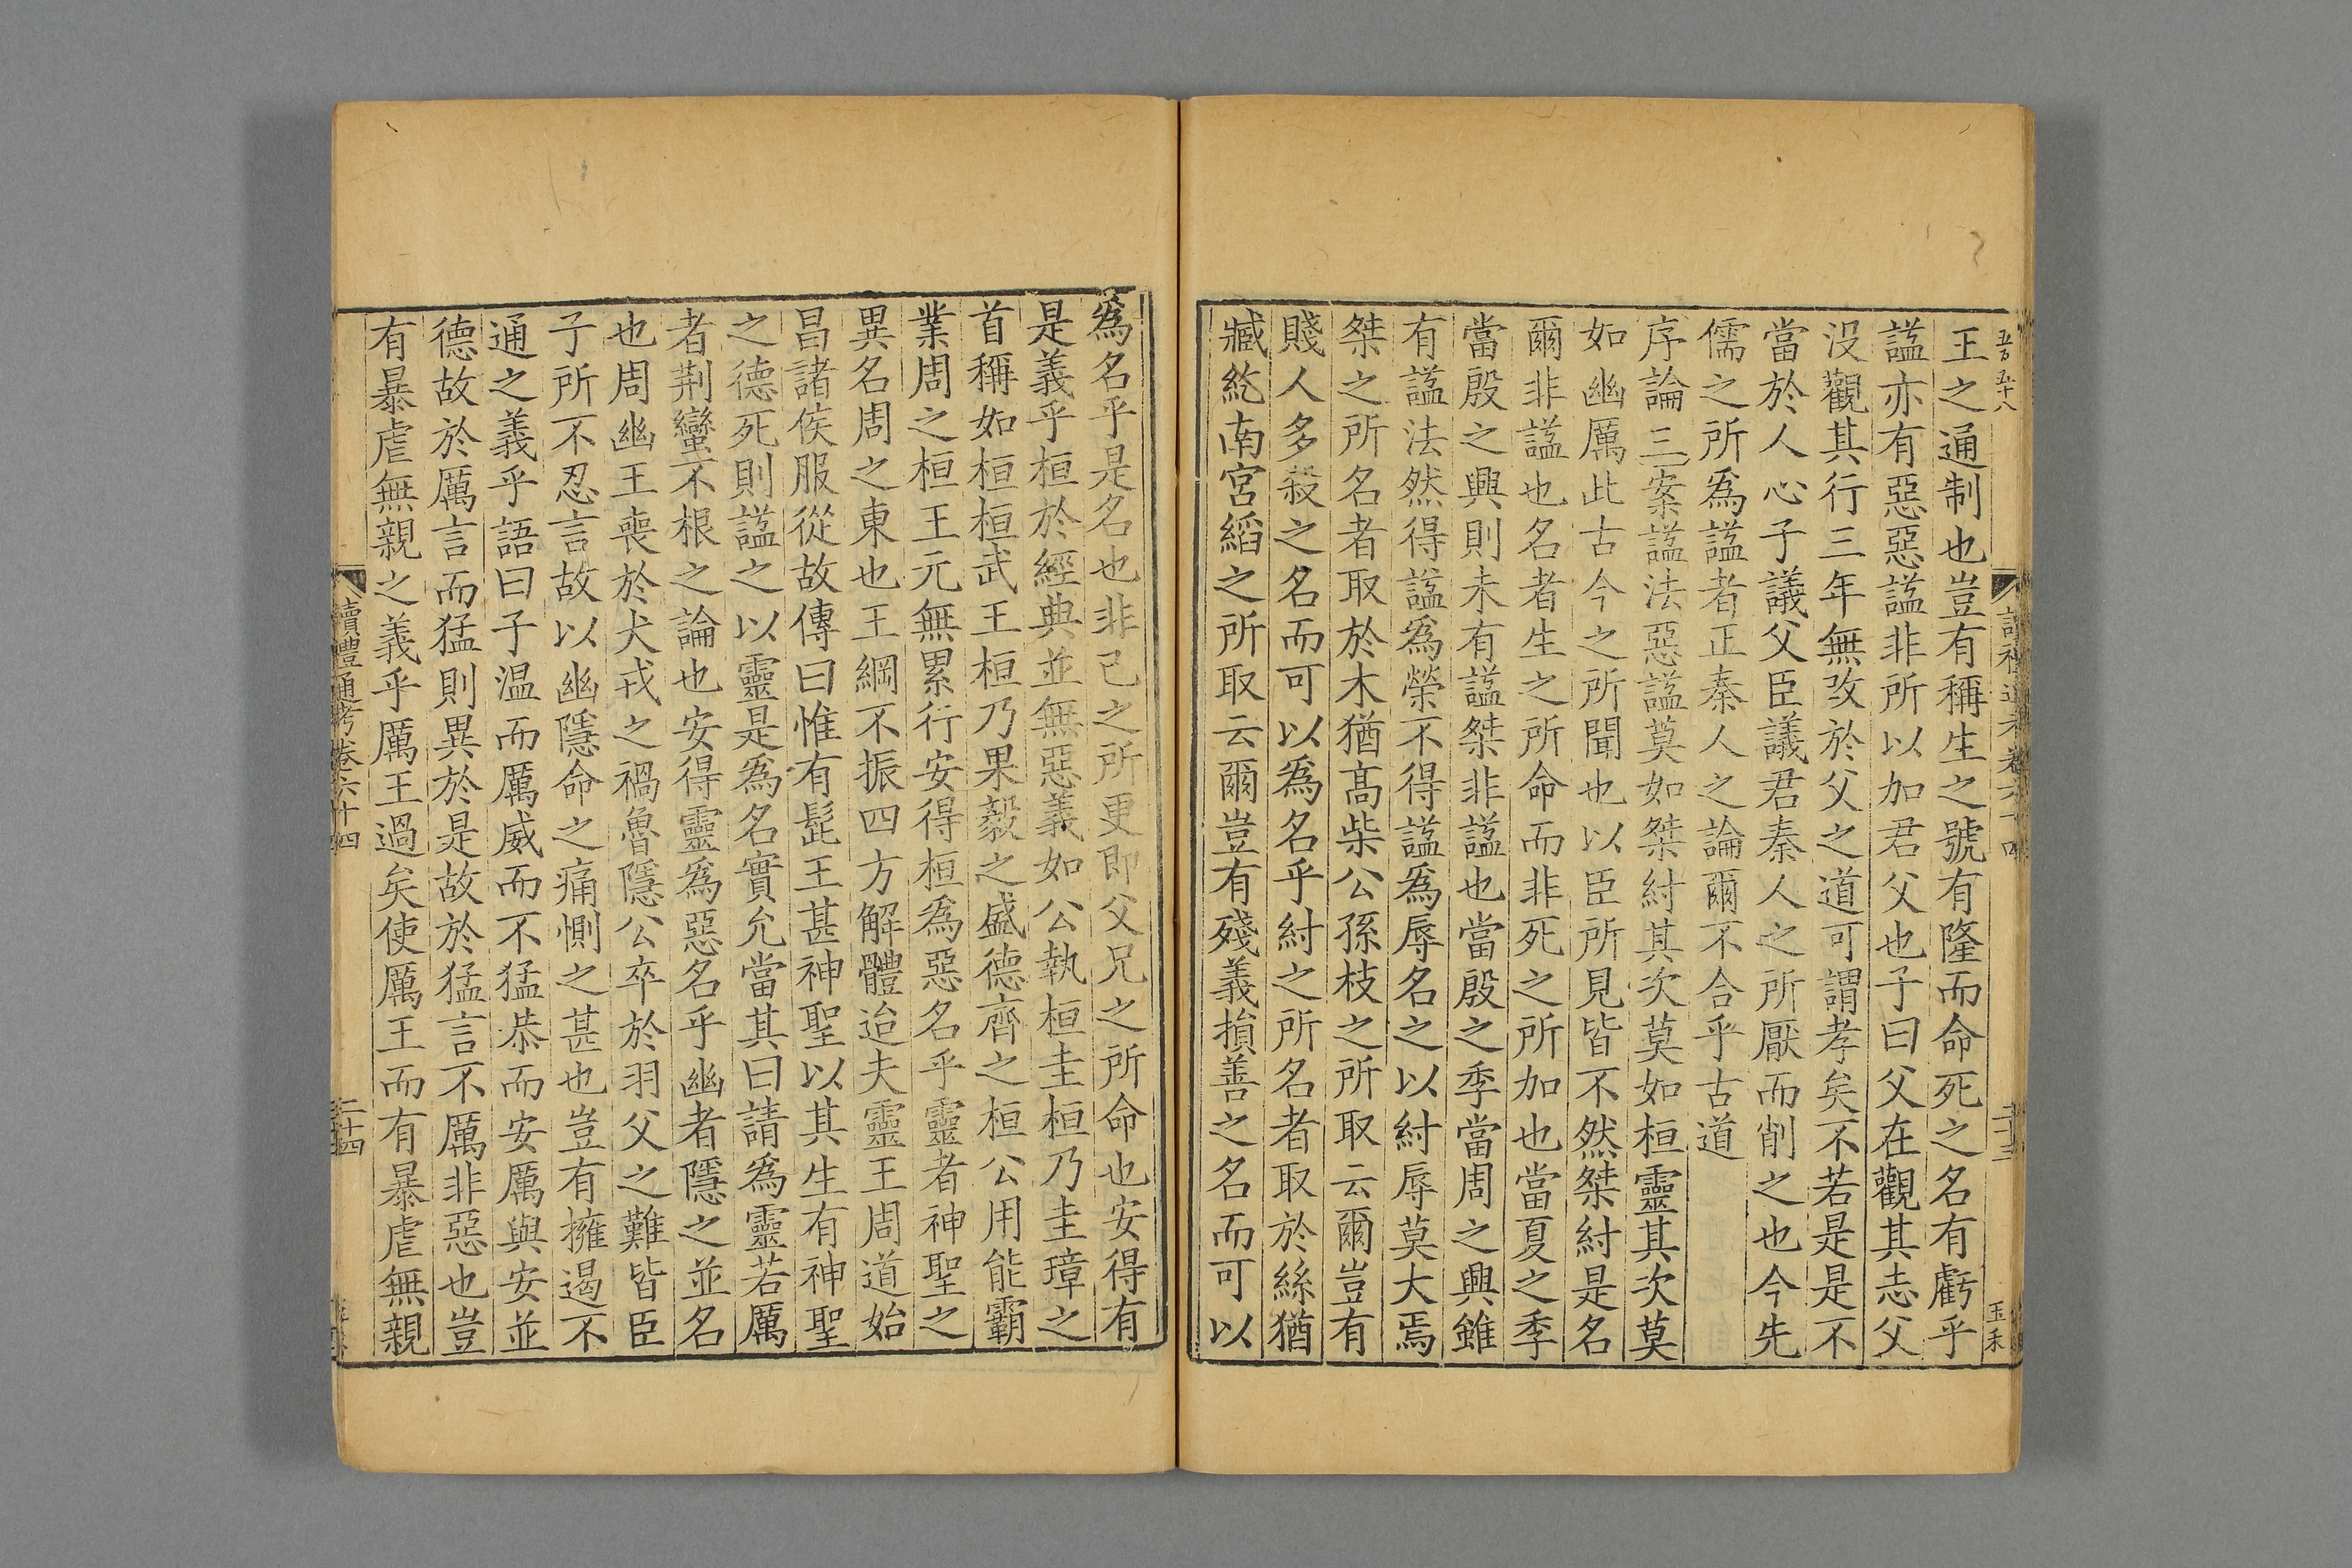 五百五十八
讀禮通考卷六十四
二十三
玉禾
王之通制也豈有稱生之號有隆而命死之名有虧乎
諡亦有惡惡諡非所以加君父也子曰父在觀其志父
没觀其行三年無改於父之道可謂孝矣不若是是不
當於人心子議父臣議君秦人之所厭而削之也今先
儒之所爲諡者正秦人之論爾不合乎古道
序論三案諡法惡諡莫如桀紂其次莫如桓靈其次莫
如幽厲此古今之所聞也以臣所見皆不然桀紂是名
爾非諡也名者生之所命而非死之所加也當夏之季
當殷之興則未有諡桀非諡也當殷之季當周之興雖
有諡法然得諡爲榮不得諡爲辱名之以紂辱莫大焉
桀之所名者取於木猶高柴公孫枝之所取云爾豈有
賤人多殺之名而可以爲名乎紂之所名者取於絲猶
臧紇南宫縚之所取云爾豈有殘義損善之名而可以
爲名乎是名也非己之所更即父兄之所命也安得有
是義乎桓於經典並無惡義如公執桓圭桓乃圭璋之
首稱如桓桓武王桓乃果毅之盛德齊之桓公用能霸
業周之桓王元無累行安得桓爲惡名乎靈者神聖之
異名周之東也王綱不振四方解體迨夫靈王周道始
昌諸侯服從故傳曰惟有髭王甚神聖以其生有神聖
之德死則諡之以靈是爲名實允當其曰請爲靈若厲
者荆蠻不根之論也安得靈爲惡名乎幽者隱之並名
也周幽王喪於犬戎之禍魯隱公卒於羽父之難皆臣
子所不忍言故以幽隱命之痛惻之甚也豈有擁遏不
通之義乎語曰子温而厲威而不猛恭而安厲與安並
德故於厲言而猛則異於是故於猛言不厲非惡也豈
有暴虐無親之義乎厲王過矣使厲王而有暴虐無親
讀禮通考卷六十四
二十四